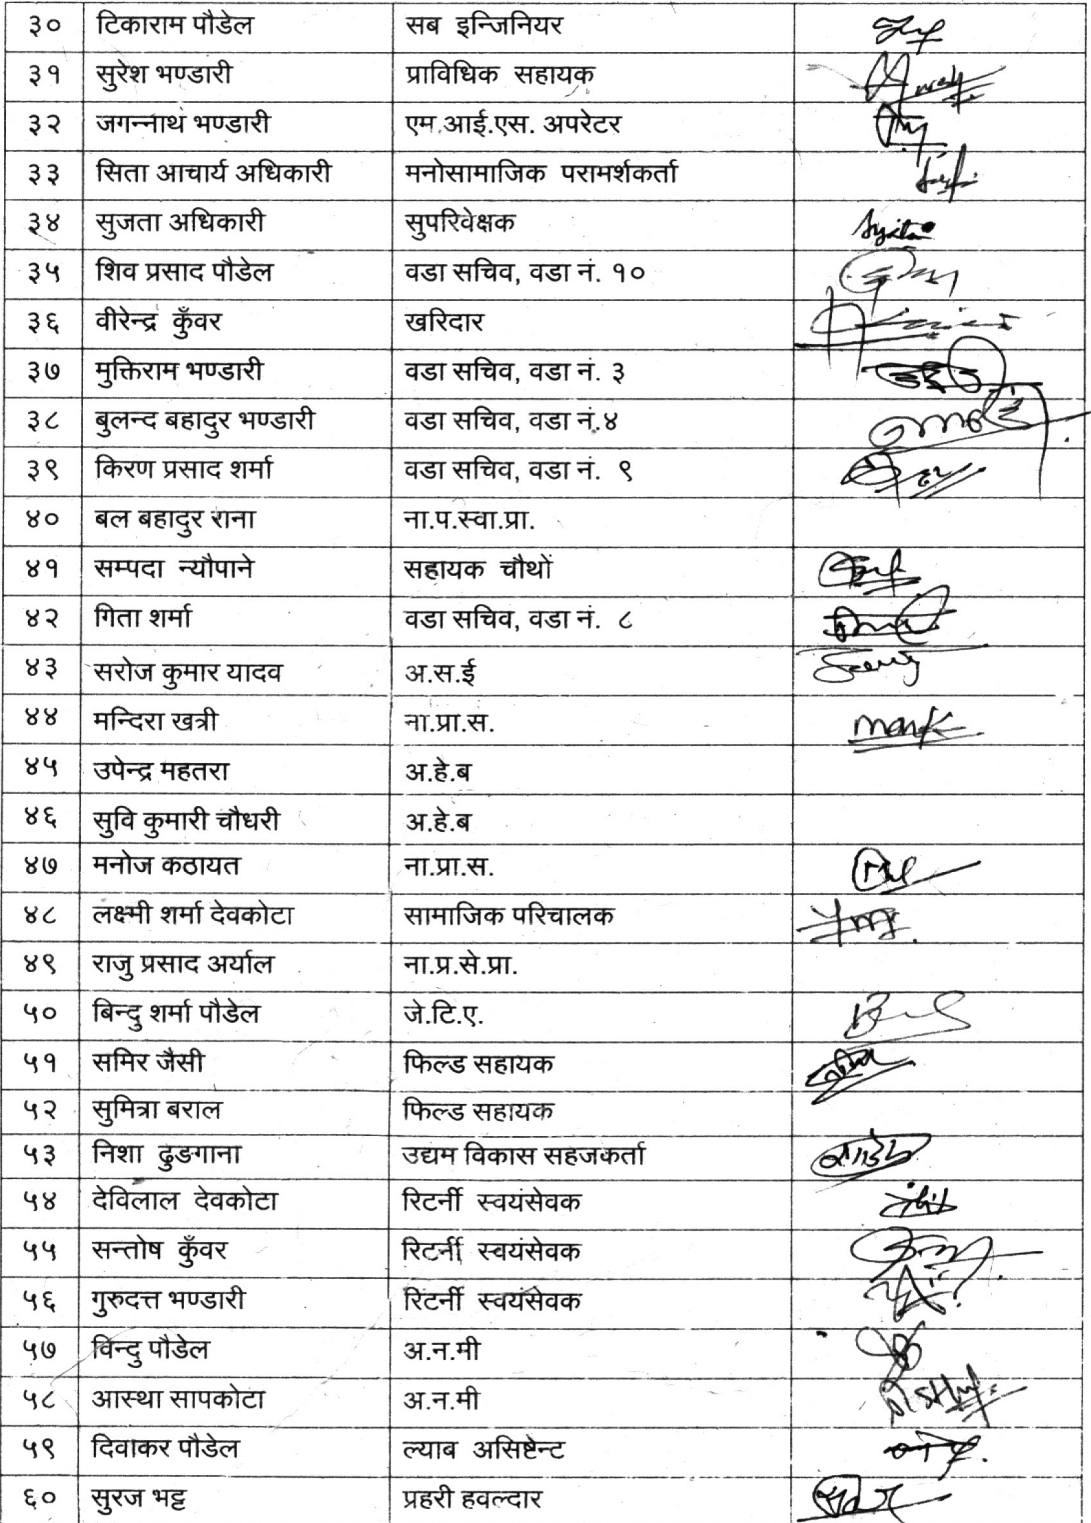 ३० टिकाराम पौडेल सब इन्जिनियर
३१ सुरेश भण्डारी प्राविधिक सहायक
३२ जगन्नाथ भण्डारी एम.आई.एस. अपरेटर
३३ सिता आचार्य अधिकारी मनोसामाजिक परामर्शकर्ता
३४ सुजता अधिकारी सुपरिवेक्षक
३५ शिव प्रसाद पौडेल वडा सचिव, वडा नं. १०
३६ वीरेन्द्र कुँवर खरिदार
३७ मुक्तिराम भण्डारी वडा सचिव, वडा नं. ३
३८ बुलन्द बहादुर भण्डारी वडा सचिव, वडा नं.४
३९ किरण प्रसाद शर्मा वडा सचिव, वडा नं. ९
४० बल बहादुर राना ना.प.स्वा.प्रा.
४१ सम्पदा न्यौपाने सहायक चौथों
४२ गिता शर्मा वडा सचिव, वडा नं. ८
४३ सरोज कुमार यादव अ.स.ई
४४ मन्दिरा खत्री ना.प्रा.स.
४५ उपेन्द्र महतरा अ.हे.ब
४६ सुवि कुमारी चौधरी अ.हे.ब
४७ मनोज कठायत ना.प्रा.स.
४८ लक्ष्मी शर्मा देवकोटा सामाजिक परिचालक
४९ राजु प्रसाद अर्याल ना.प्र.से.प्रा.
५० बिन्दु शर्मा पौडेल जे.टि.ए.
५१ समिर जैसी फिल्ड सहायक
५२ सुमित्रा बराल फिल्ड सहायक
५३ निशा ढुङगाना उद्यम विकास सहजकर्ता
५४ देविलाल देवकोटा रिटर्नी स्वयंसेवक
५५ सन्तोष कुँवर रिटर्नी स्वयंसेवक
५६ गुरुदत्त भण्डारी रिटर्नी स्वयंसेवक
५७ विन्दु पौडेल अ.न.मी
५८ आस्था सापकोटा अ.न.मी
५९ दिवाकर पौडेल ल्याब असिष्टेन्ट
६० सुरज भट्ट प्रहरी हवल्दार